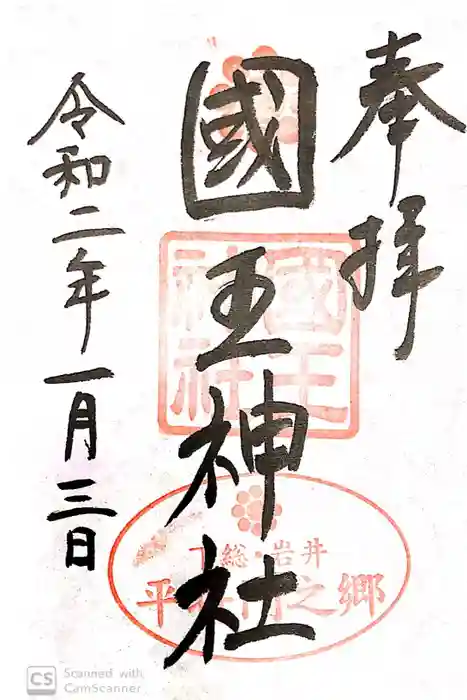 奉拝
國王神社
令和二年一月三日
國王
神社
下総・岩井
平将門之郷
CS Scanned with
CamScanner